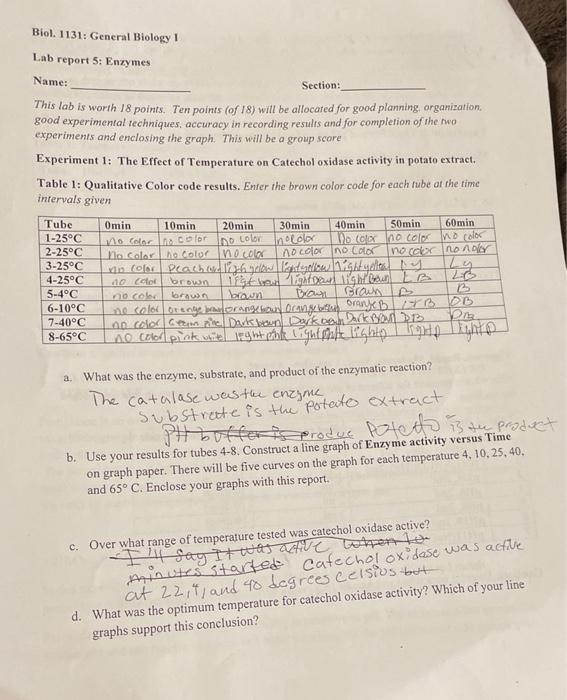 Biol. 1131: General Biology I
Lab report 5: Enzymes
Name: Section:
This lab is worth 18 points. Ten points (of 18) will be allocated for good planning, organization,
good experimental techniques, accuracy in recording results and for completion of the two
experiments and enclosing the graph. This will be a group score
Experiment 1: The Effect of Temperature on Catechol oxidase activity in potato extract.
Table 1: Qualitative Color code results. Enter the brown color code for each tube at the time
intervals given
Tube 0min 10min 20min 30min 40min 50min 60min
1-25°C no color no color no color no color no color no color no color
2-25°C no color no color no color no color no color no color no color
3-25°C no color Peach light yellow light yellow light yellow LY Ly
4-25°C no color brown light brown light brown light brown LB LB
5-4°C no color brown brown Brown Brown B B
6-10°C no color orange brown orange brown orange brown orange B OB
7-40°C no color Dark brown Dark brown Dark Brown DB
8-65°C no color pink light pink light pink light p light p light p
a. What was the enzyme, substrate, and product of the enzymatic reaction?
The catalase was the enzyme
substrate is the potato extract
PH buffer is produc Potato is the product
b. Use your results for tubes 4-8. Construct a line graph of Enzyme activity versus Time
on graph paper. There will be five curves on the graph for each temperature 4, 10, 25, 40,
and 65° C. Enclose your graphs with this report.
c. Over what range of temperature tested was catechol oxidase active?
I'll say it was active when 10
minutes started catechol oxidase was active
at 22, 4, and 40 degrees celsius but
d. What was the optimum temperature for catechol oxidase activity? Which of your line
graphs support this conclusion?